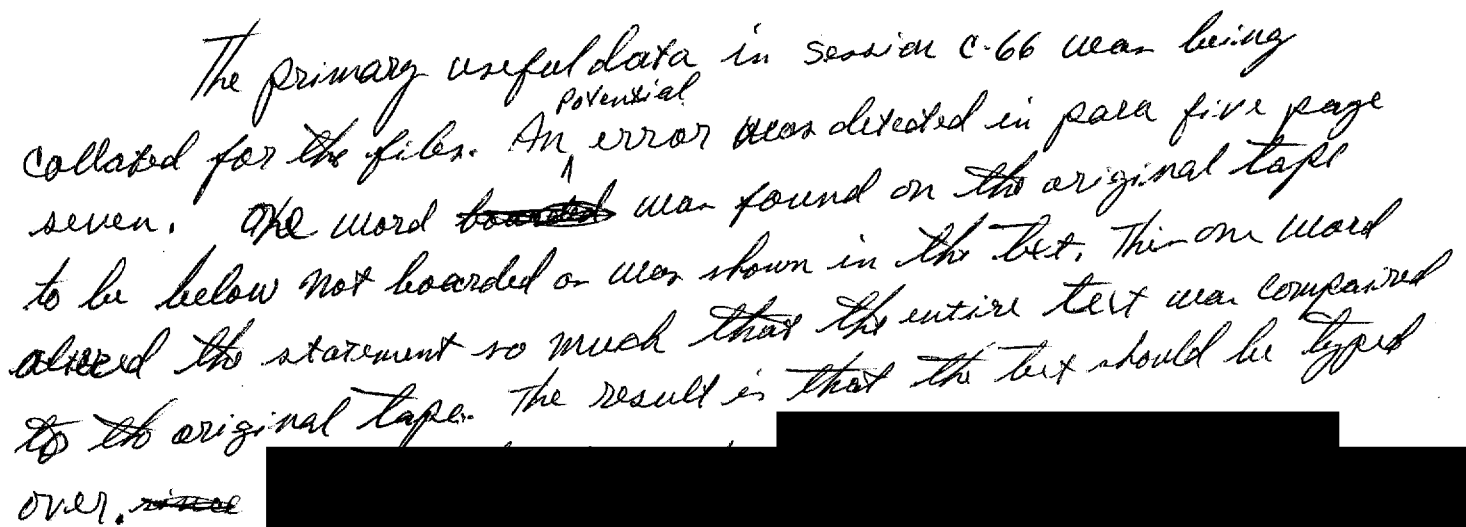 The primary useful data in Session C-66 was being
collated for the files. An potential error was detected in para five page
seven. The word boarded was found on the original tape
to be below not boarded as was shown in the text. This one word
altered the statement so much that the entire text was compaired
to the original tape. The result is that the text should be typed
over. since